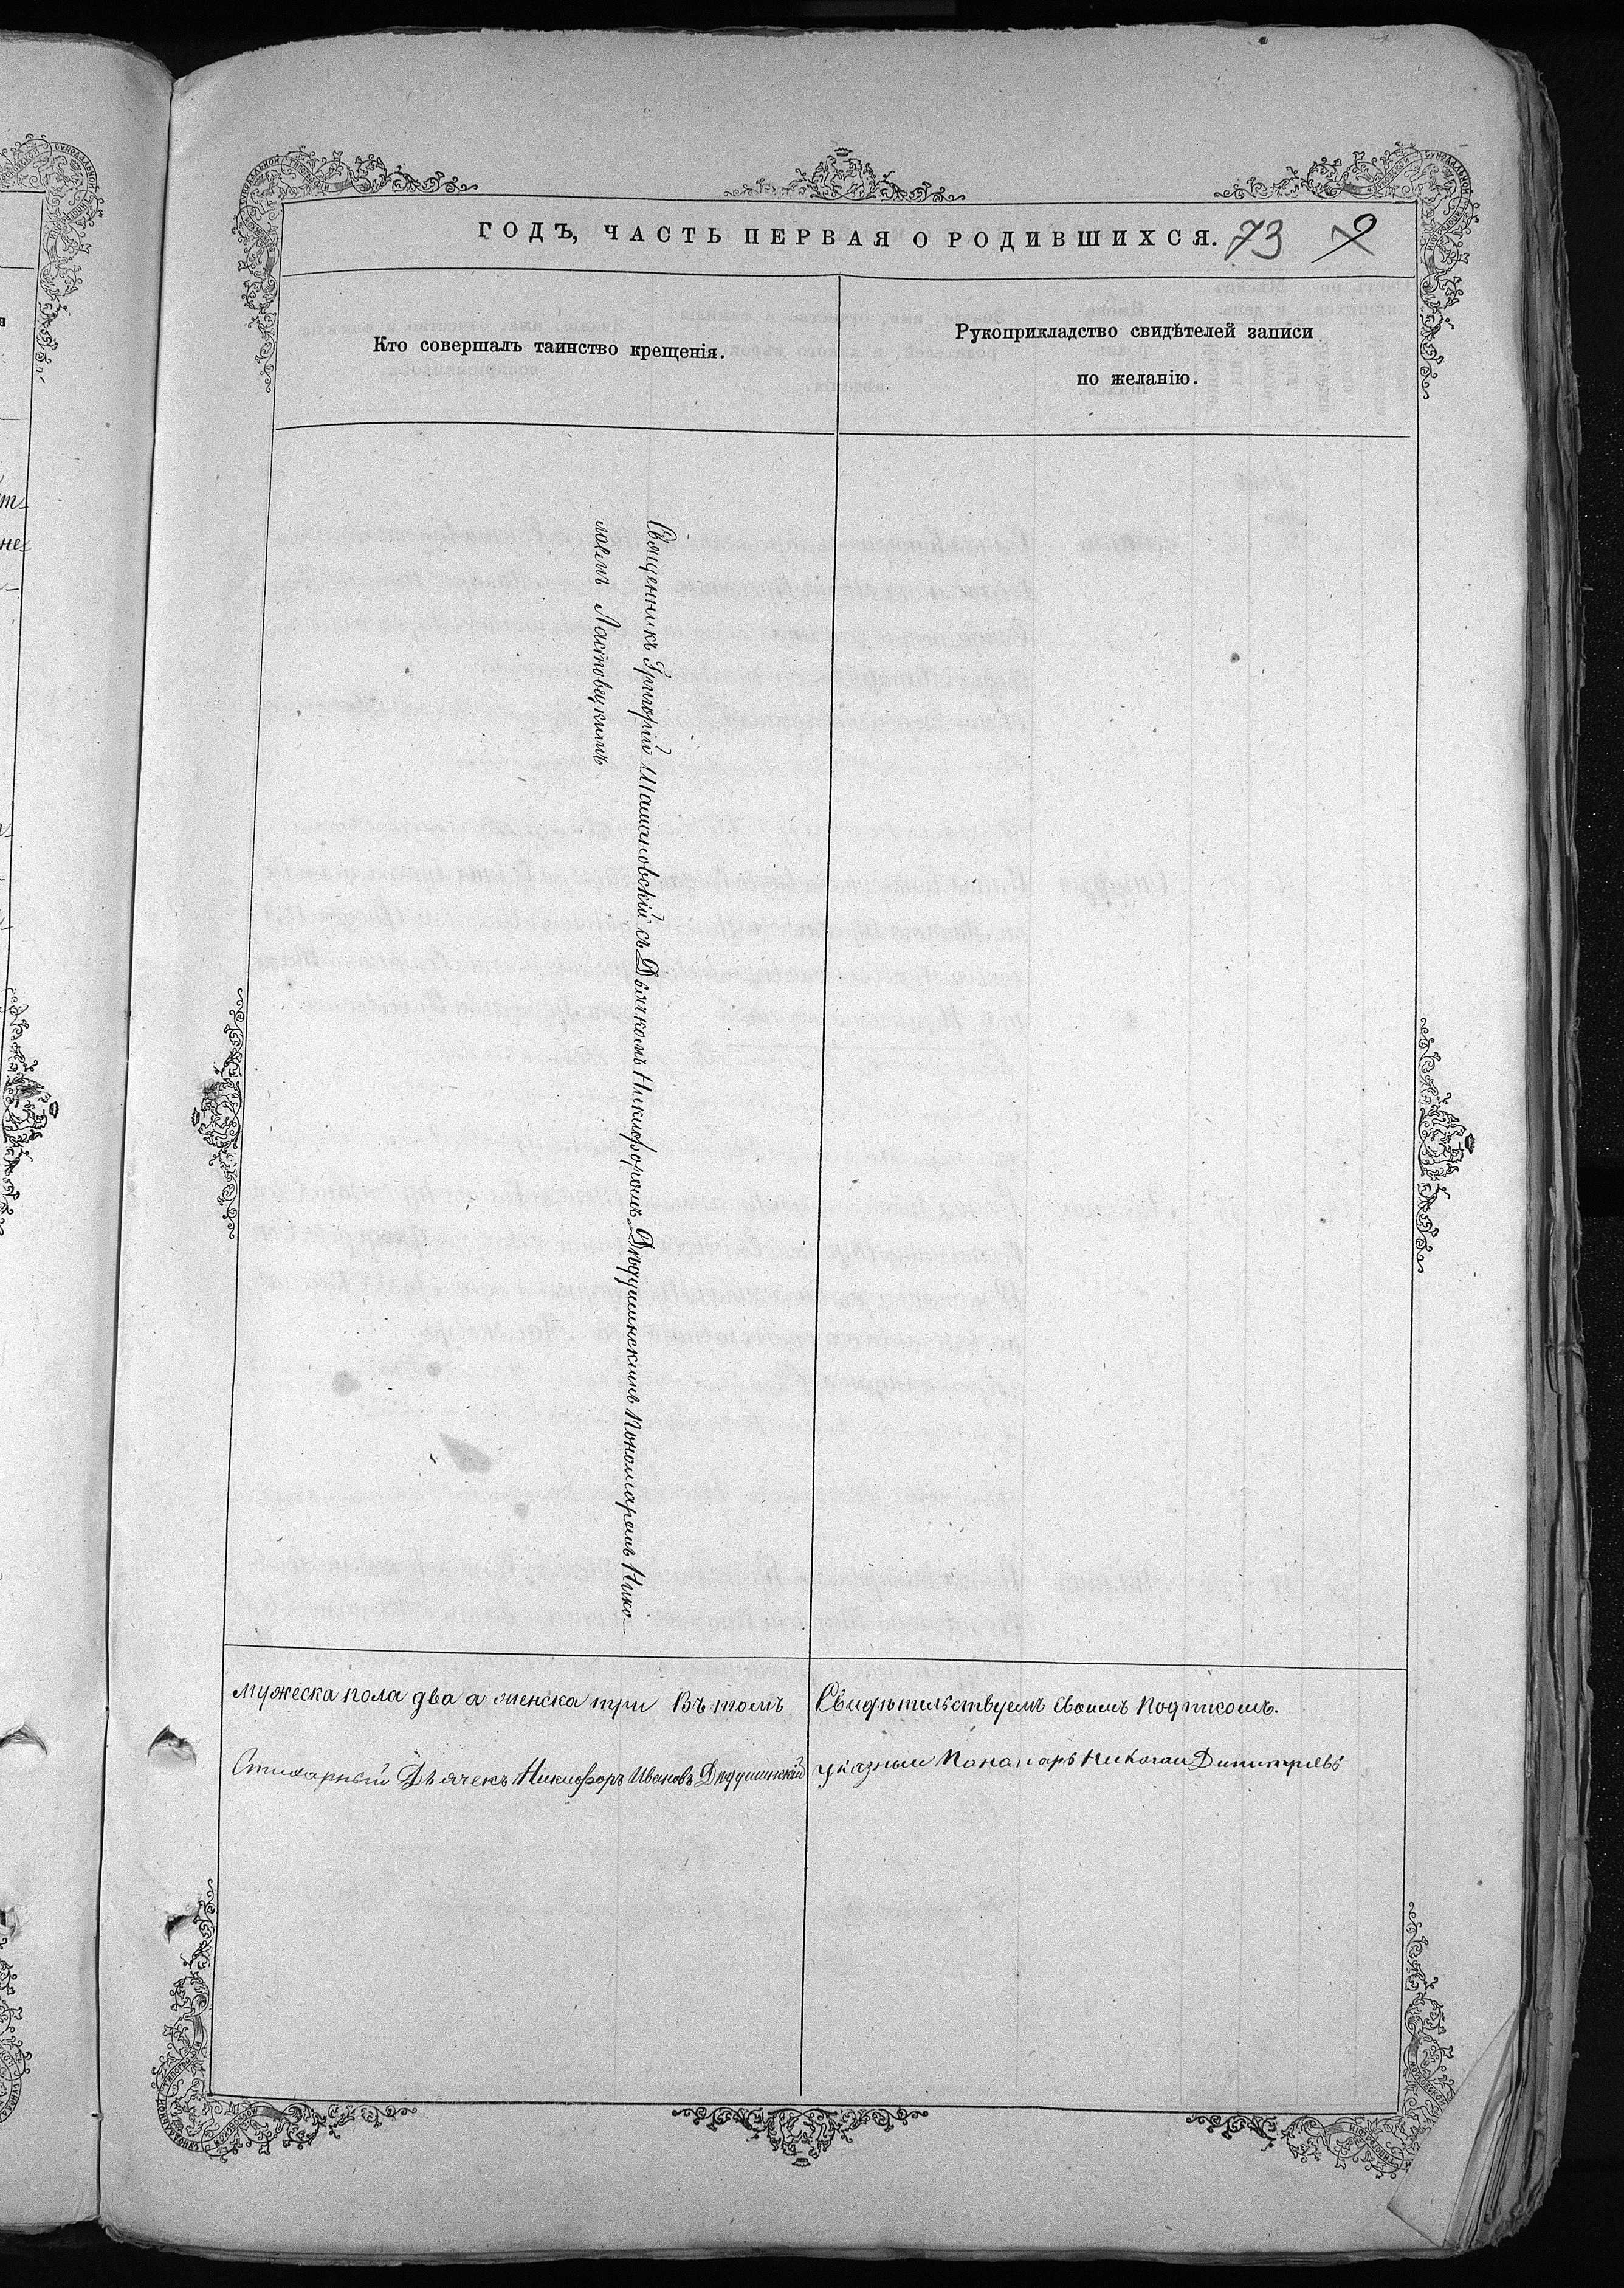 ГОДЪ, ЧАСТЬ ПЕРВАЯ О РОДИВШИХСЯ. 73 9
Кто совершалъ таинство крещенія.
Рукоприкладство свидѣтелей записи
по желанію.
Священникъ Григорій Шамановскій съ Дьячкомъ Никифоромъ Дѣдушинскимъ Пономаремъ Нико-
лаемъ Ластовецкимъ
мужеска пола два а женска три Въ томъ
Свидѣтельствуемъ своимъ подписомъ.
Стихарный Дьячекъ Никифоръ Ивановъ Дѣдушинскій
указный Понамарь Николай Димитріевъ